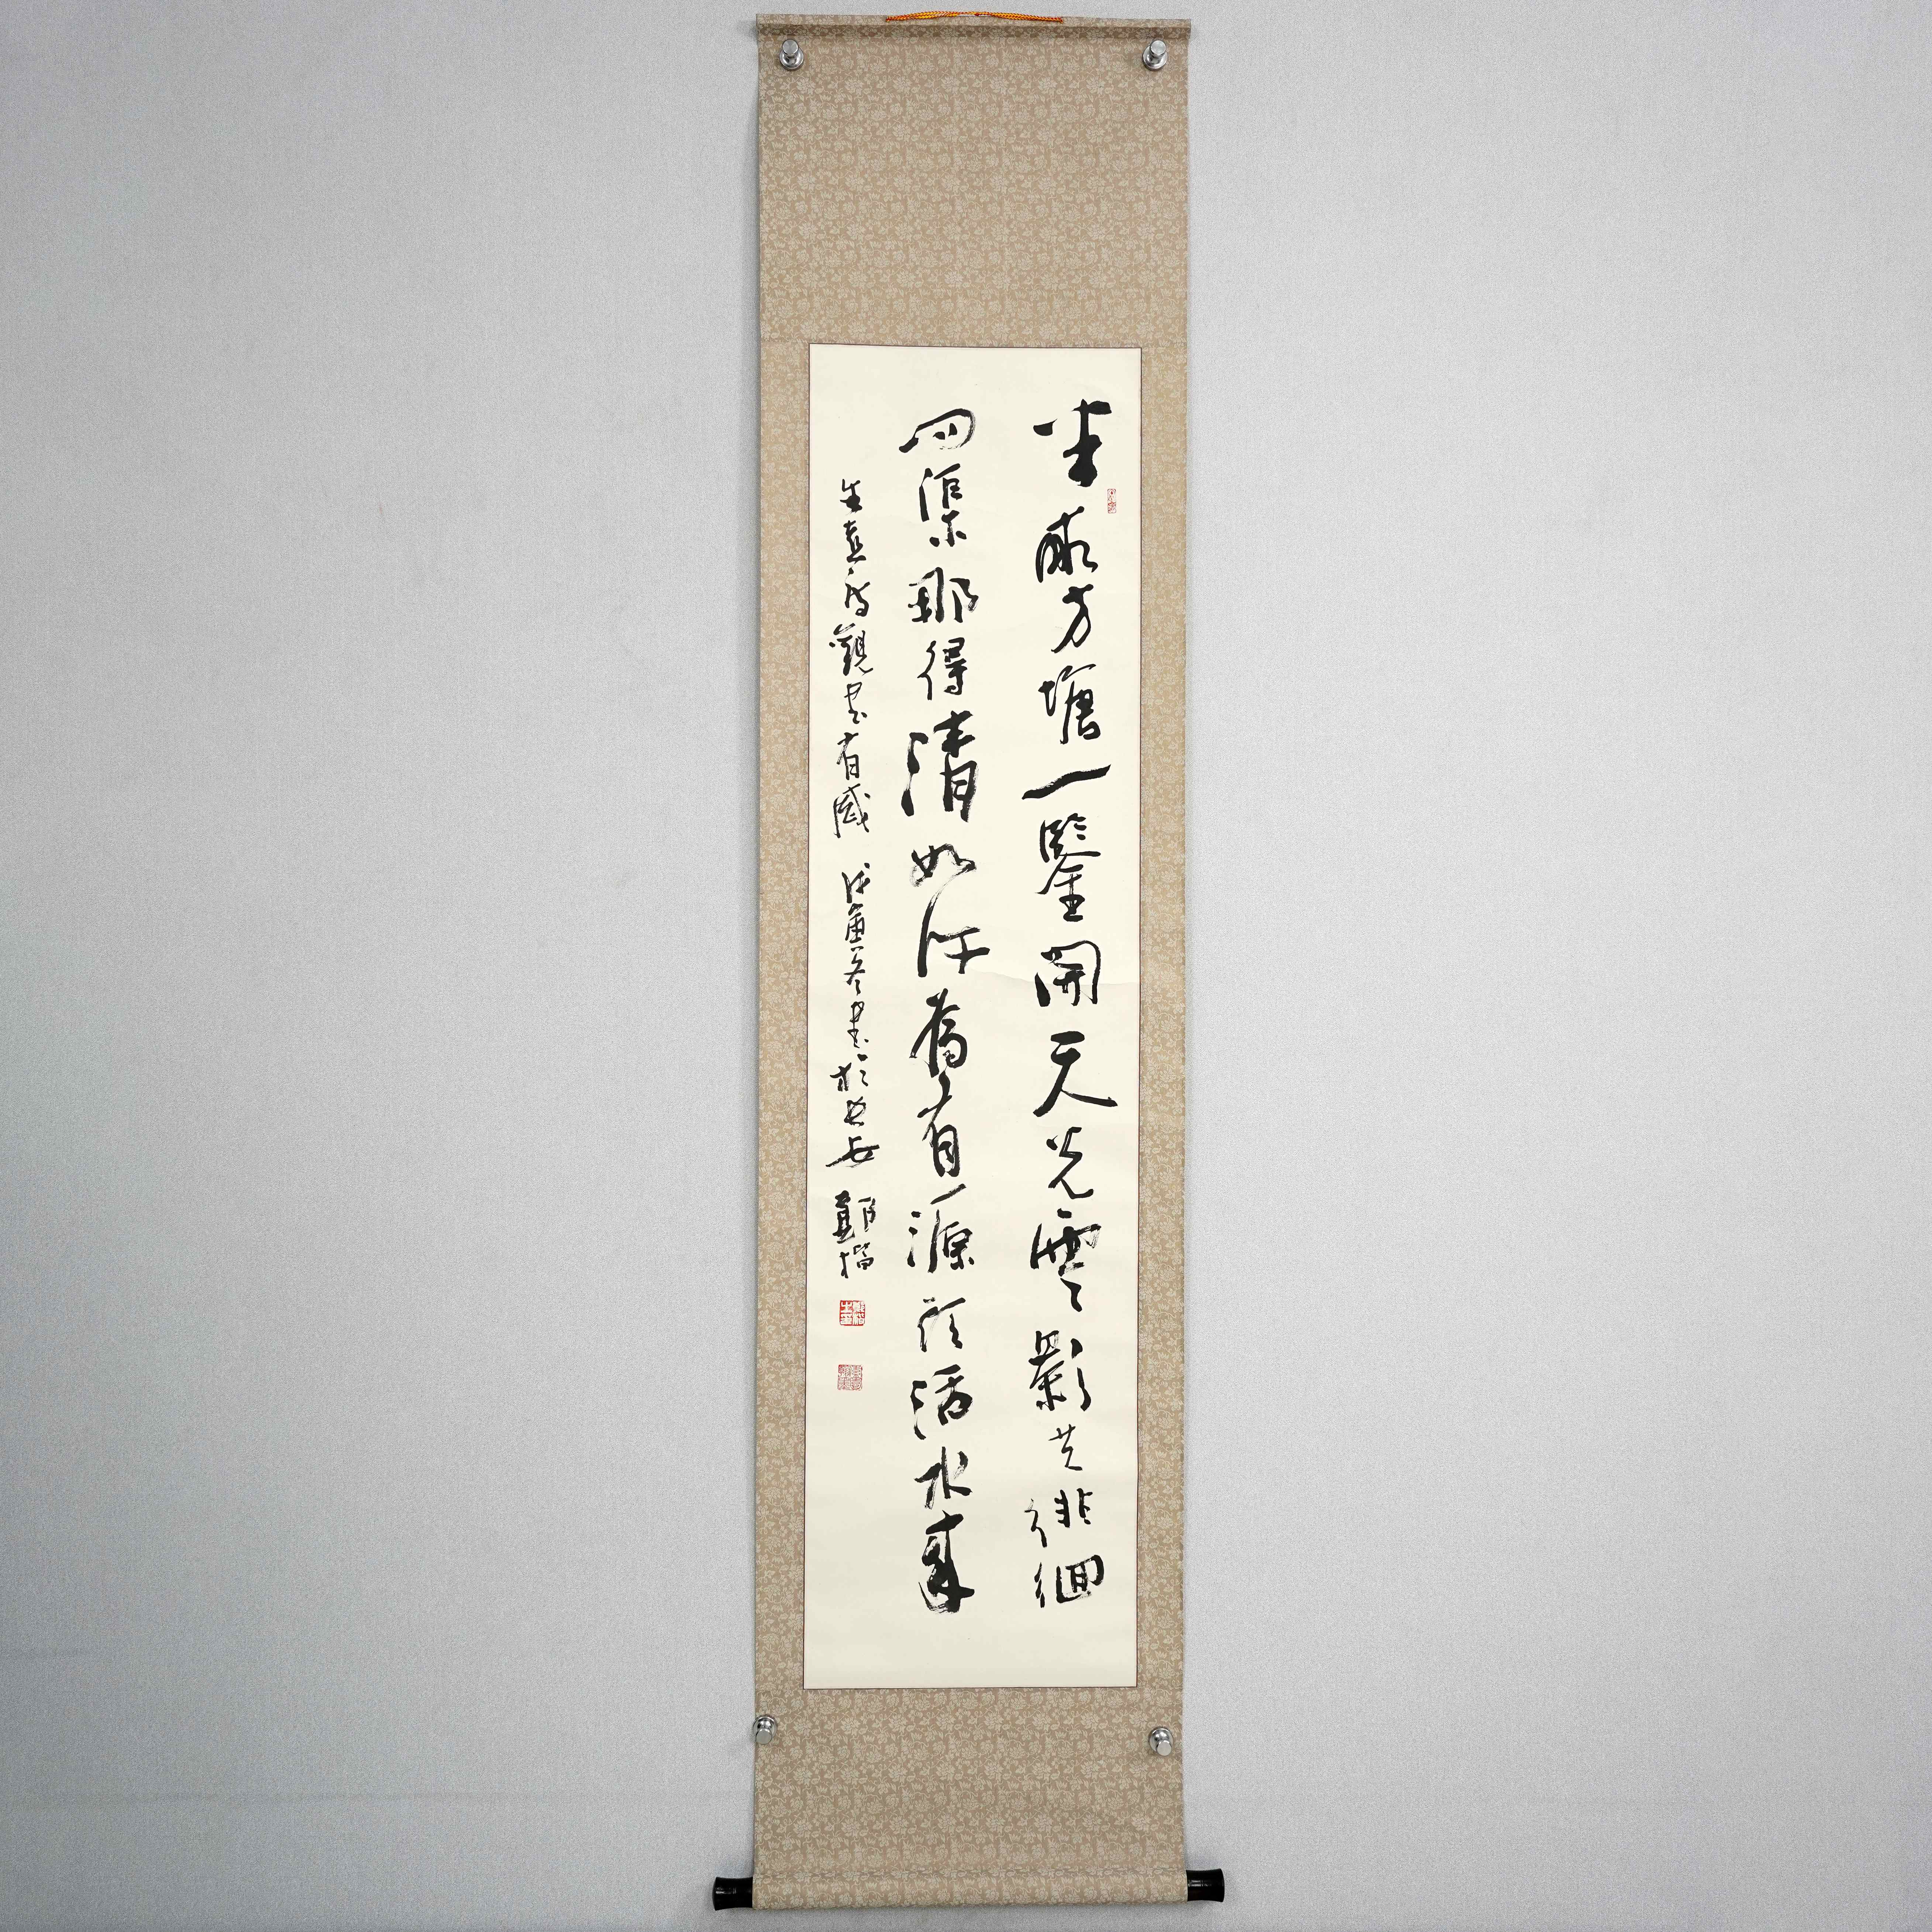 半畝方塘一鑒開天光雲影共徘徊
問渠那得清如許為有源頭活水來
朱熹詩觀書有感 戊寅冬書於長安 鄭